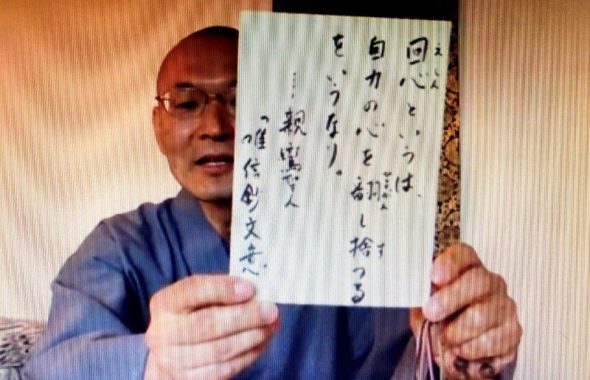 えしん
回心というは、
す
自力の心を翻し捨つる
をいうなり。
―親鸞聖人
『唯信鈔文意』